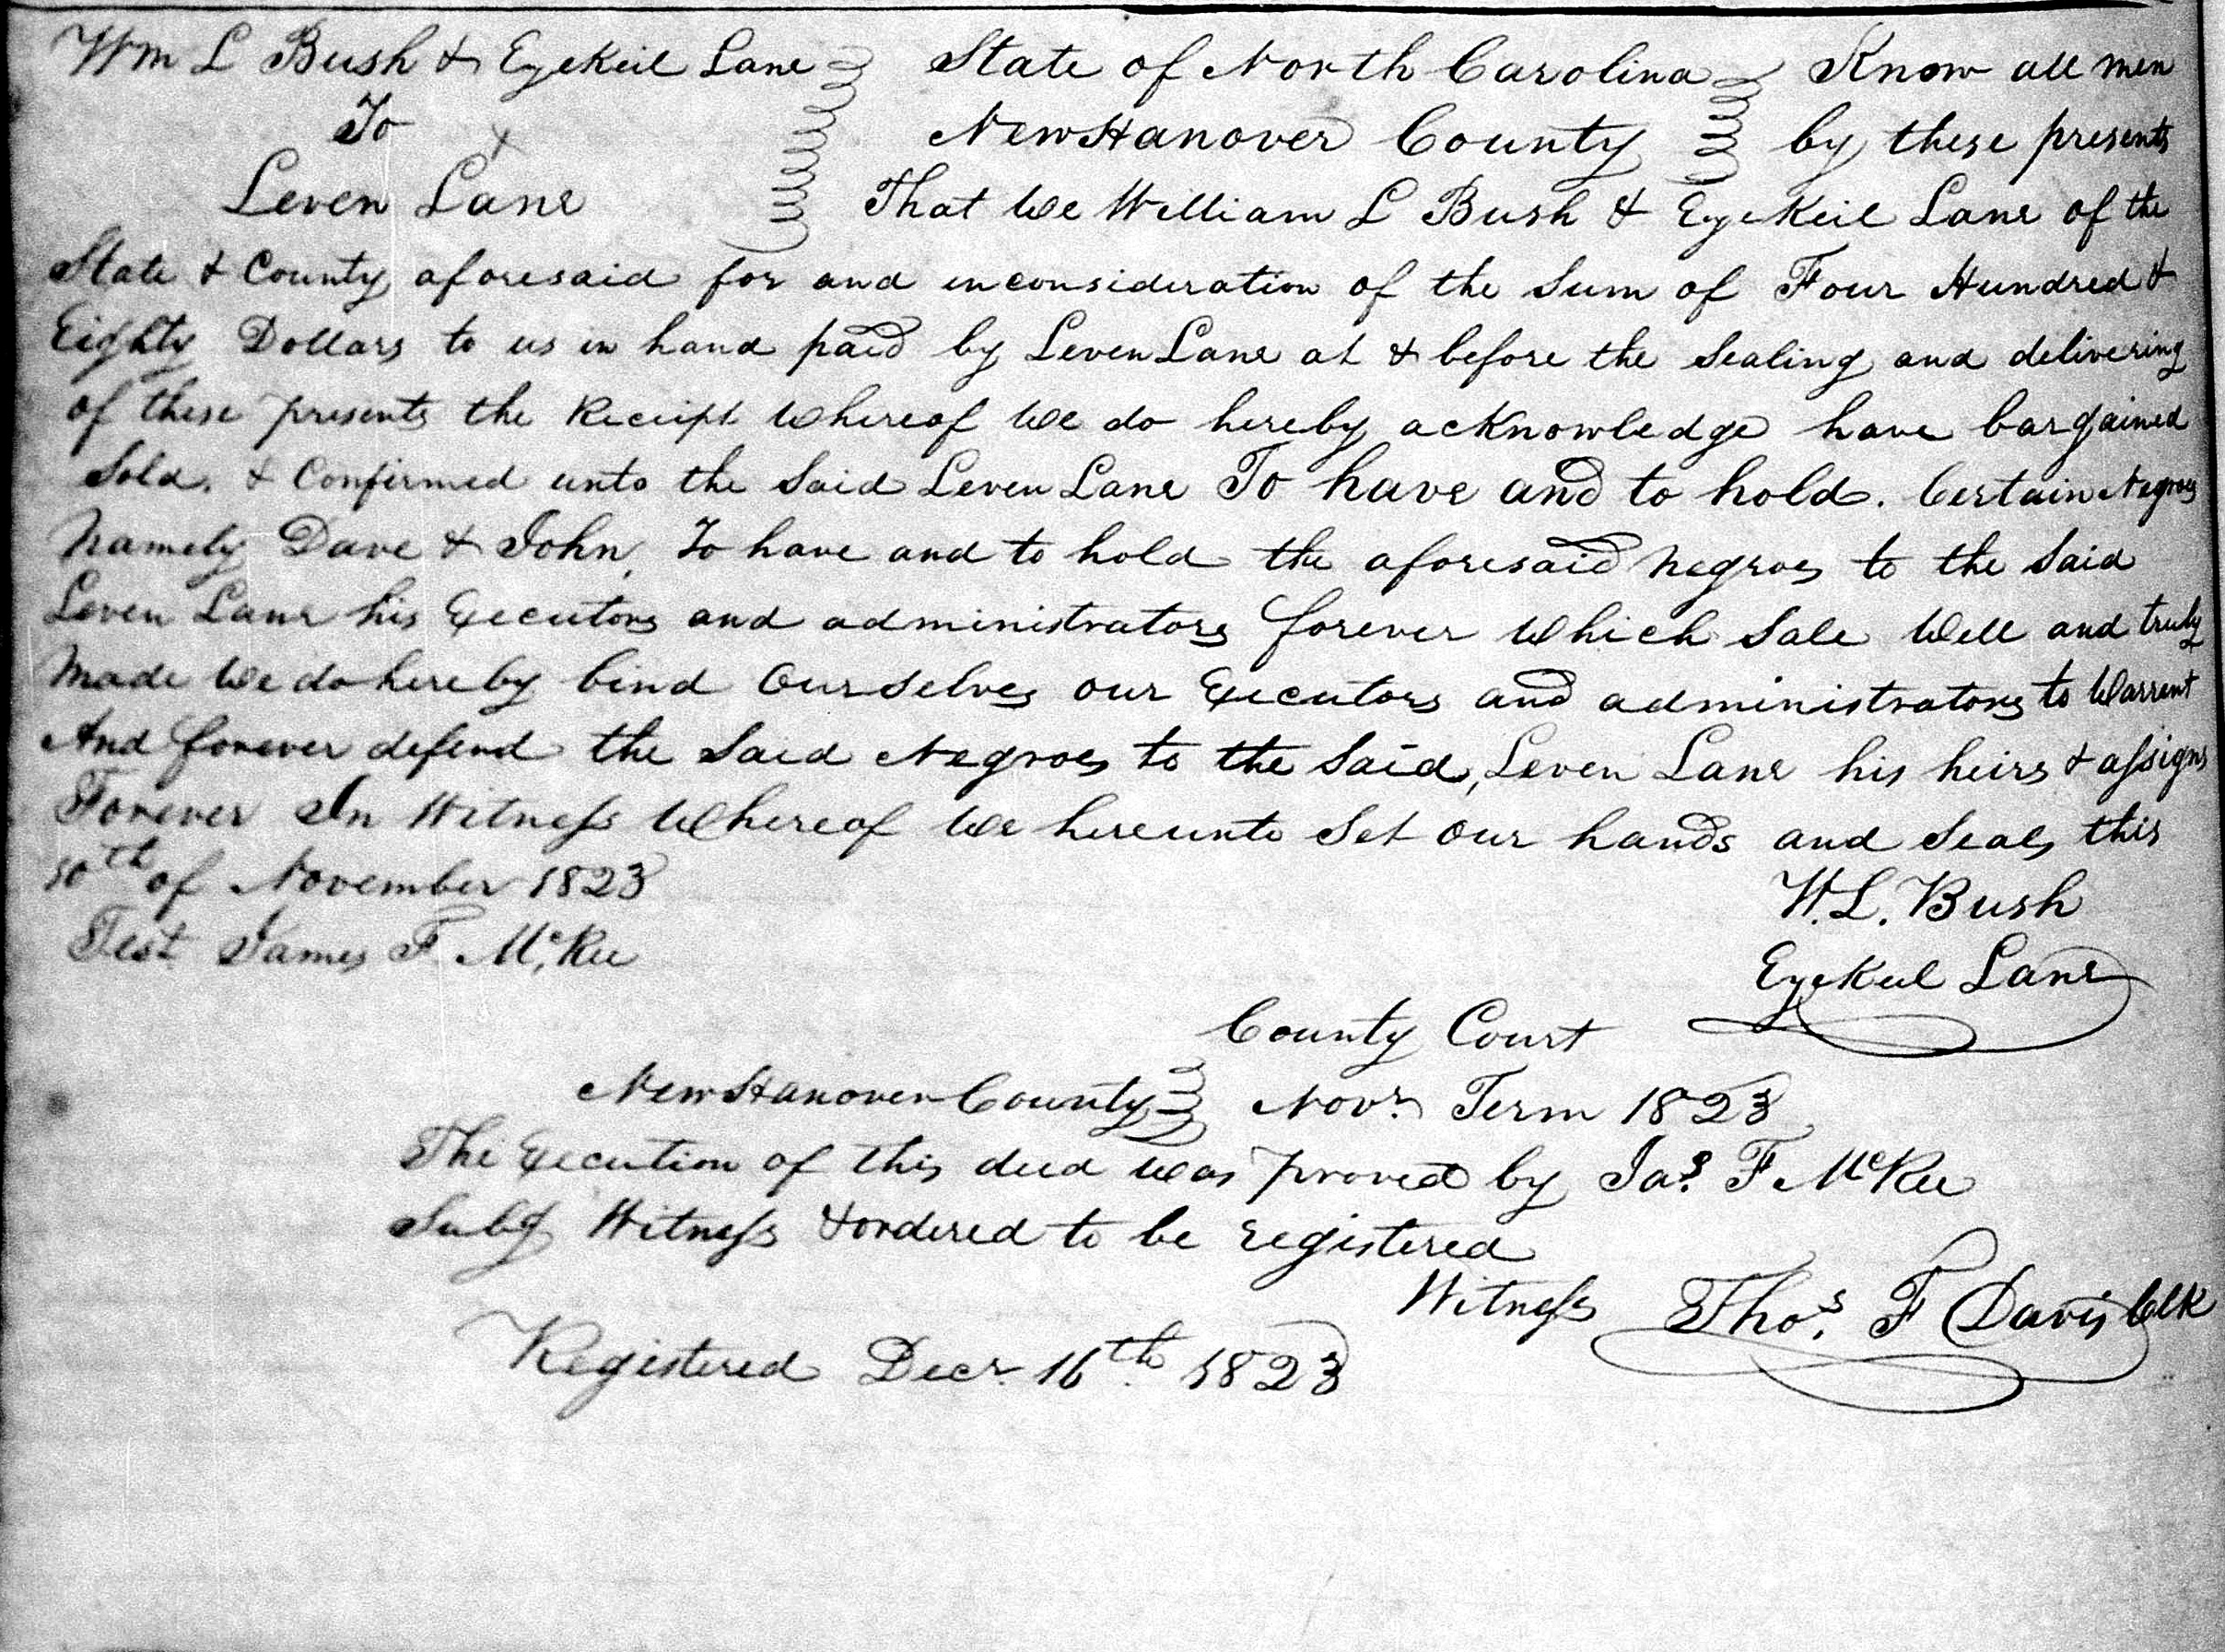 Wm L Bush & Ezekeil Lane State of North Carolina Know all men
To New Hanover County by these presents
Leven Lane That We William L Bush & Ezekeil Lane of the
State & County aforesaid for and inconsideration of the Sum of Four Hundred &
Eighty Dollars to us in hand paid by Leven Lane at & before the Sealing and delivering
of these presents the Receipt Whereof We do hereby acknowledge have bargained
Sold. & Confirmed unto the Said Leven Lane To have and to hold. Certain Negroes
Namely Dave & John, To have and to hold the aforesaid Negroes to the Said
Leven Lane his Executors and administrators forever Which Sale Well and truly
Made We do hereby bind Ourselves our Executors and administrators to Warrent
And forever defend the Said Negroes to the Said, Leven Lane his heirs & assigns
Forever In Witness Whereof We hereunto Set our hands and Seals this
10th of November 1823
W. L. Bush
Test James F. McRee
Ezekeil Lane
County Court
New Hanover County Novr. Term 1823
The Execution of this deed was proved by Jas. F McRee
Subg Witness & ordered to be registered
Witness Thos. F Davis Clk
Registered Decr. 16th. 1823